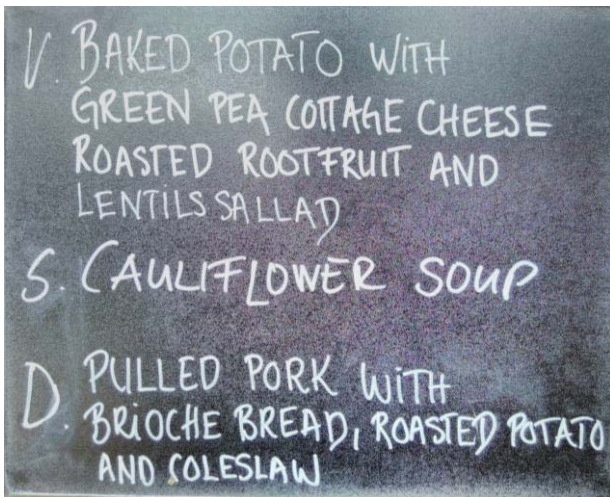 V. BAKED POTATO WITH
GREEN PEA COTTAGE CHEESE
ROASTED ROOTFRUIT AND
LENTILS SALLAD
S. CAULIFLOWER SOUP
D. PULLED PORK WITH
BRIOCHE BREAD, ROASTED POTATO
AND COLESLAW